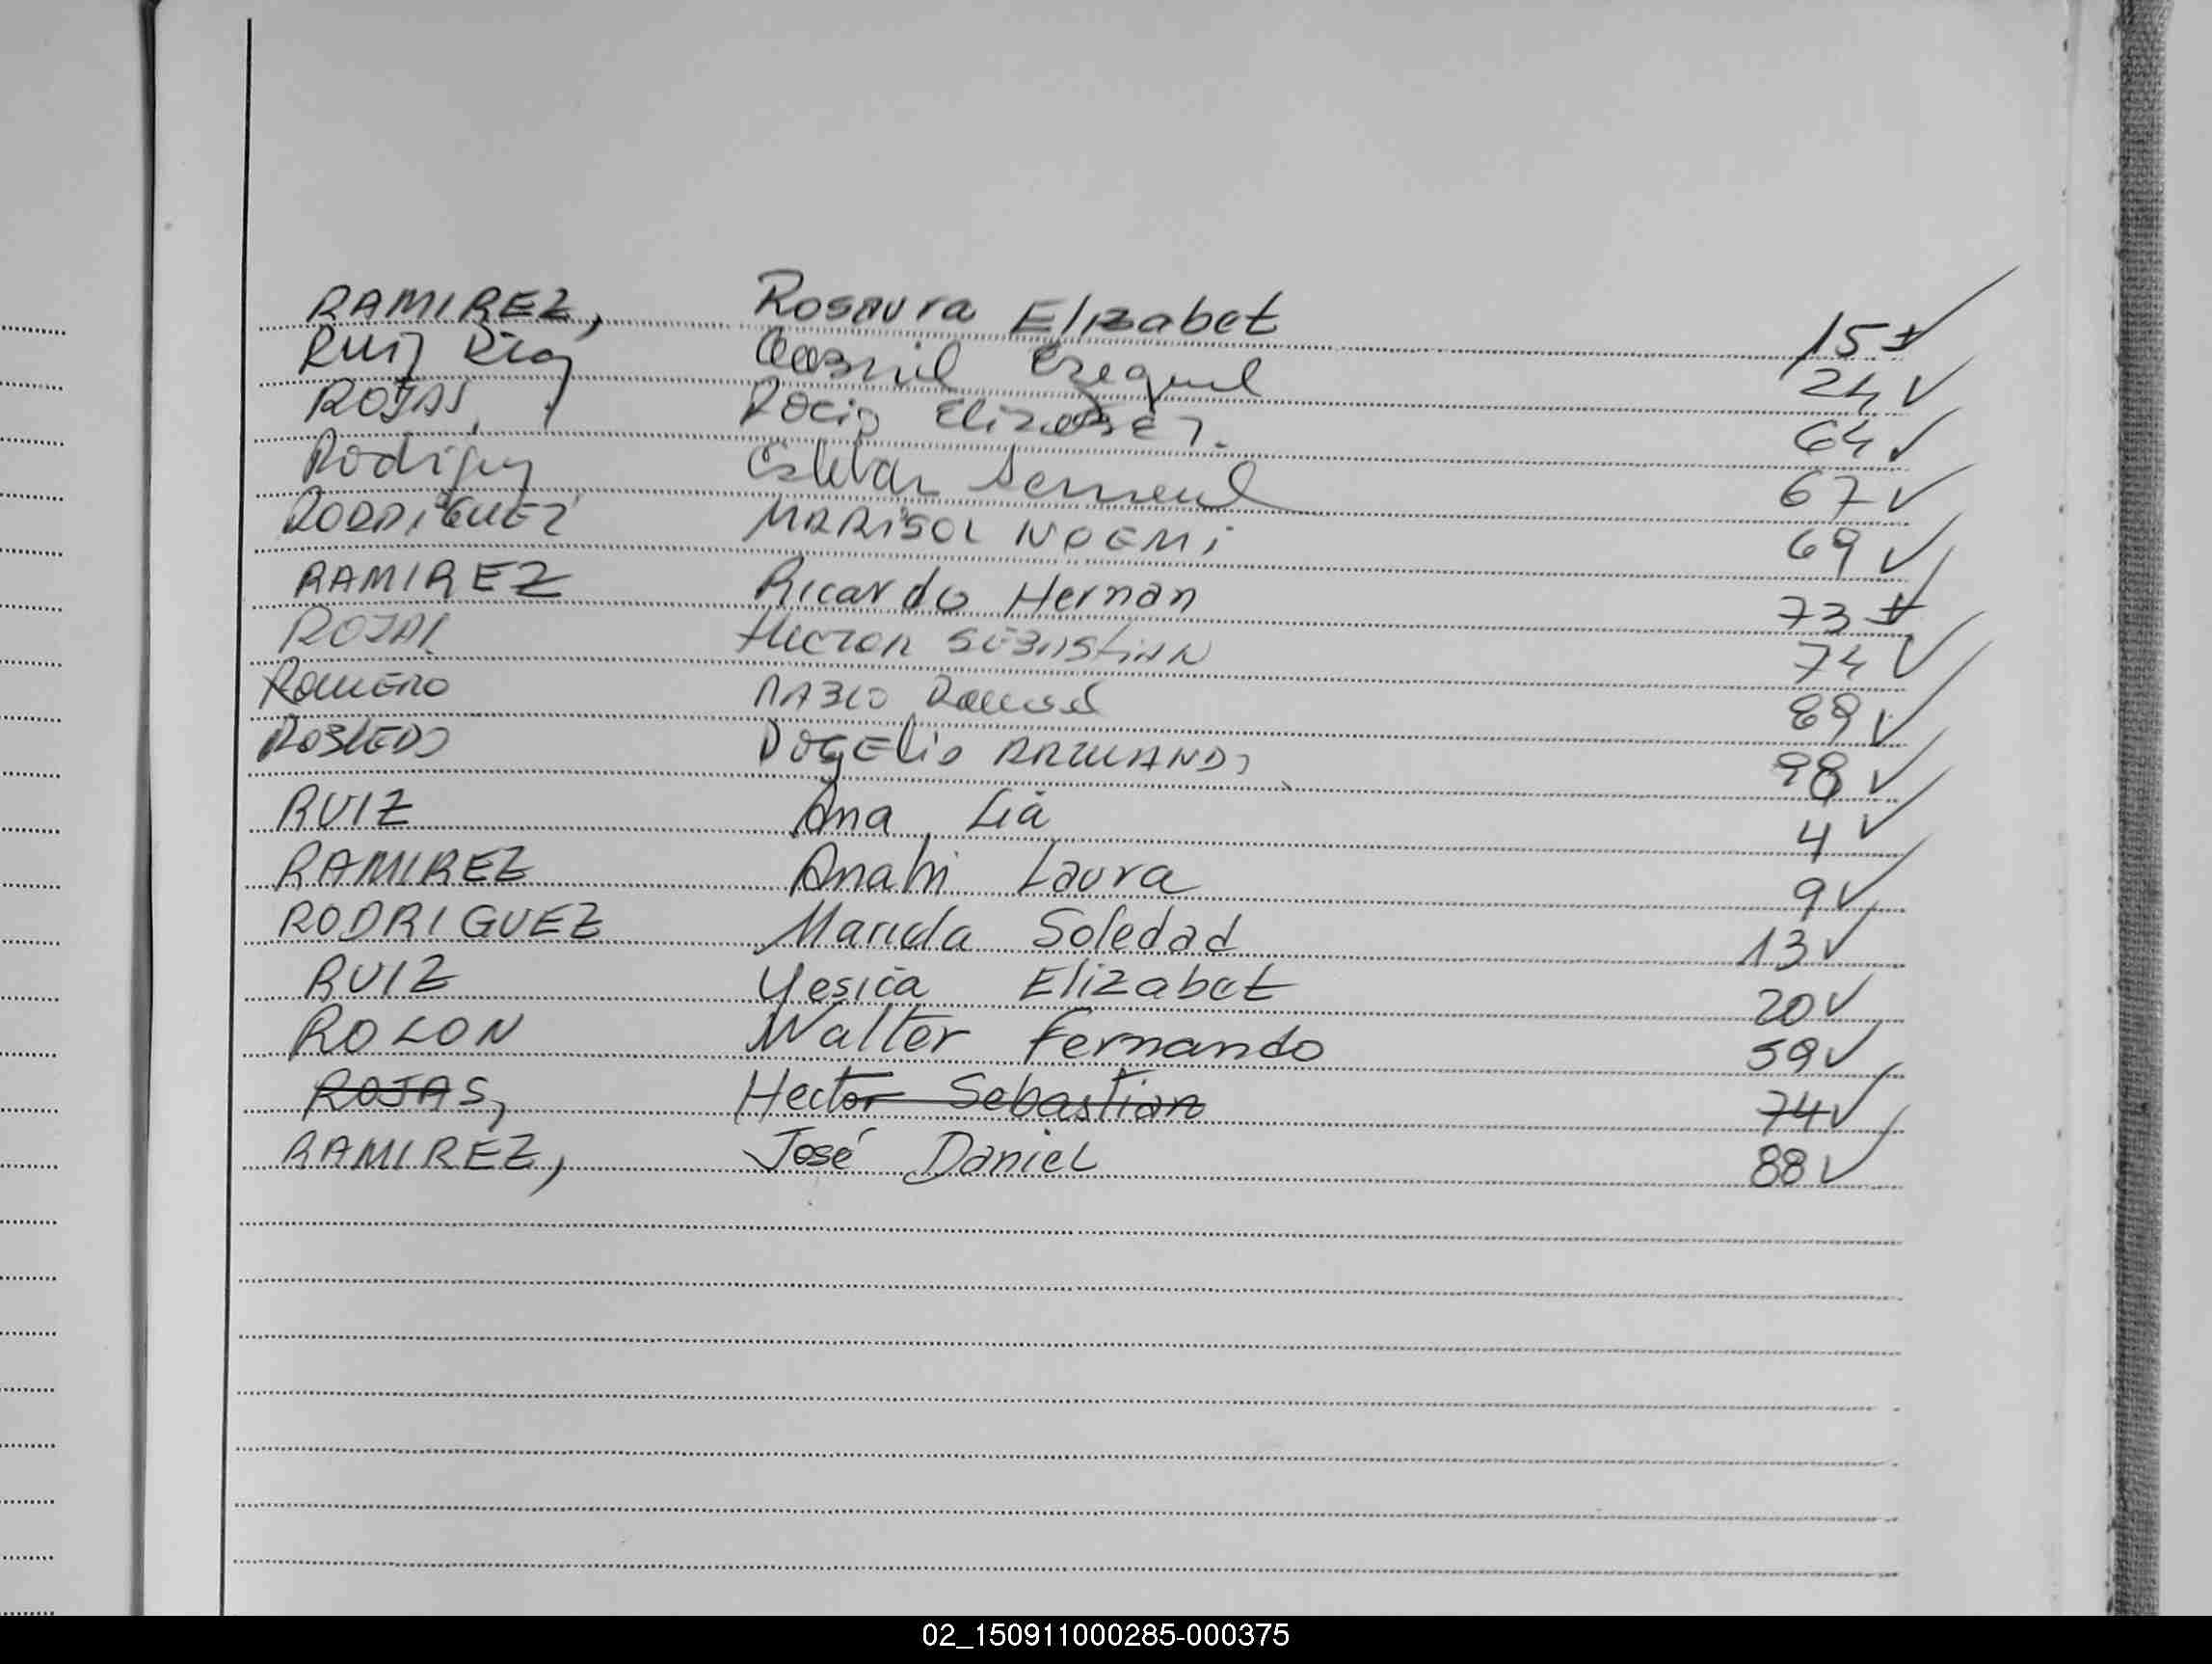 RAMIREZ, Rosaura Elizabet 15
Ruiz Gabriel Ezequiel 24 ✓
ROJAS, Rocio Elizabet. 64 ✓
Esteban Samuel 67 ✓
RODRIGUEZ MARISOL NOEMI 69 ✓
RAMIREZ Ricardo Hernan 73
ROJAS Hector SEBASTIAN 74 ✓
ROMERO PABLO 89 ✓
ROBLEDO ROGELIO ARMANDO 98 ✓
RUIZ Ana Lia 4 ✓
RAMIREZ Anahi Laura 9 ✓
RODRIGUEZ Mariela Soledad 13 ✓
RUIZ Yesica Elizabet 20 ✓
ROLON Walter Fernando 59 ✓
ROJAS, Hector Sebastian 74 ✓
RAMIREZ, José Daniel 88 ✓
02_150911000285-000375